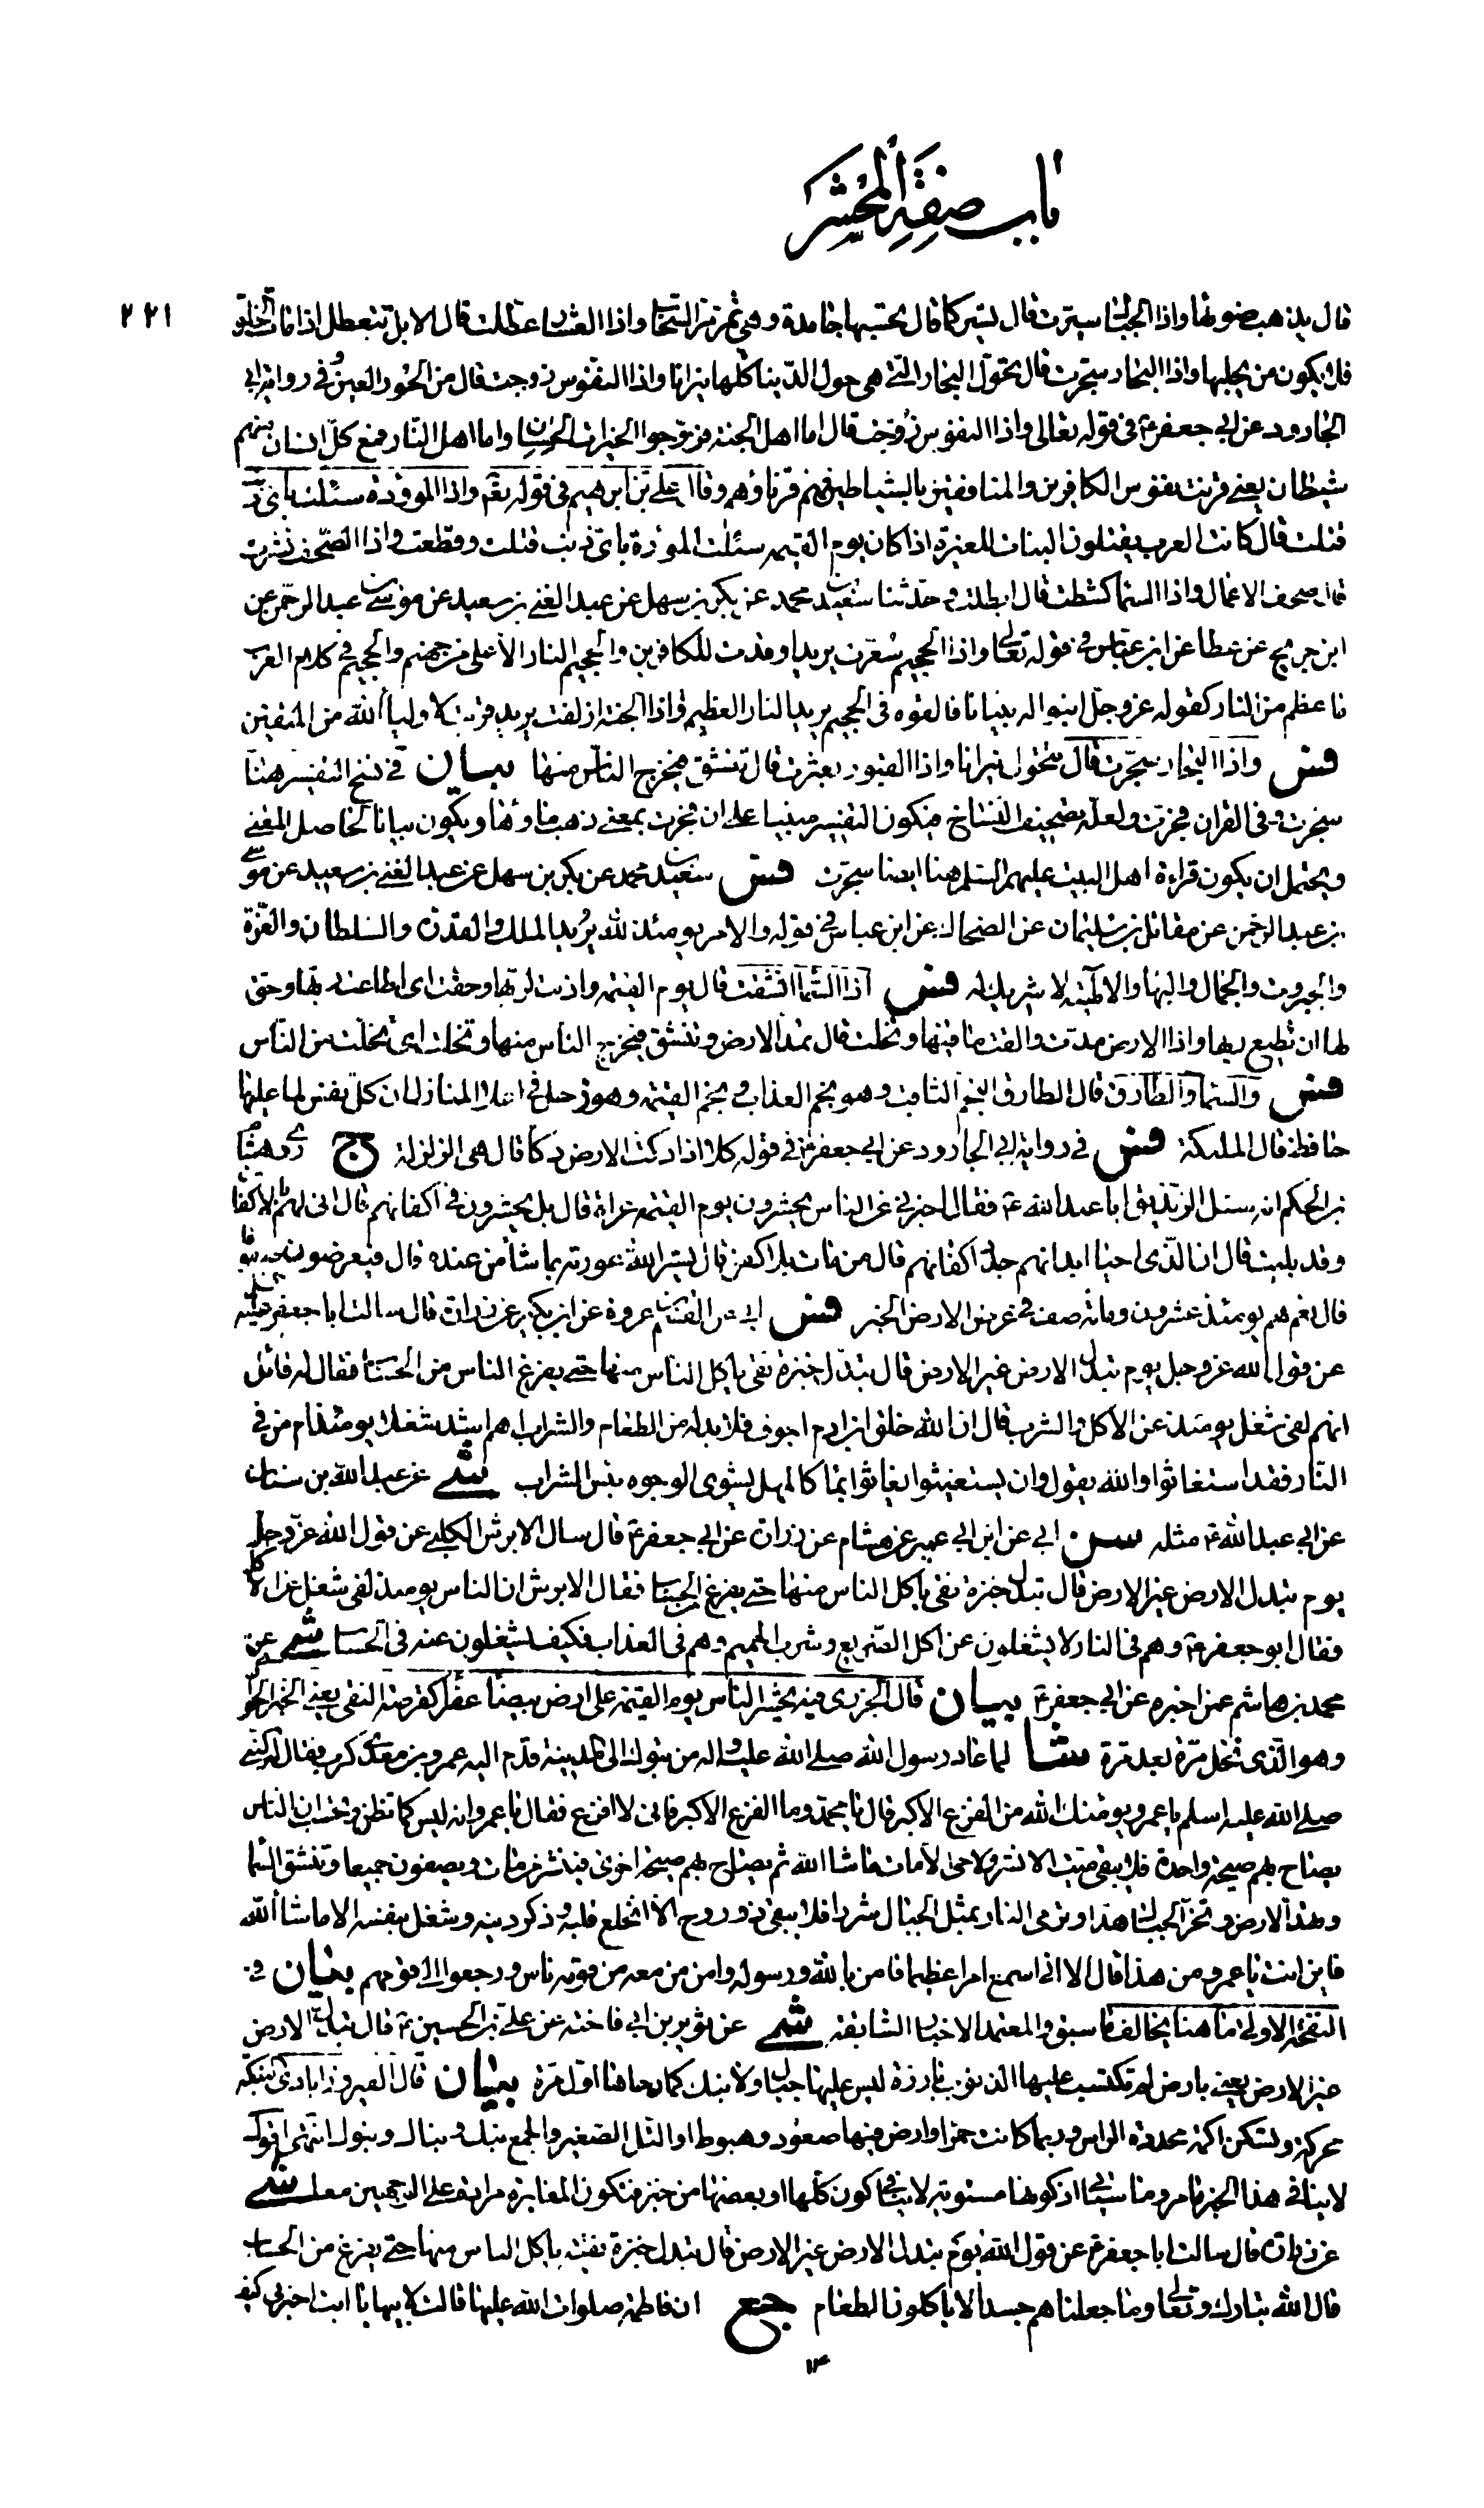 باب صفة المحشر
٢٢١
قال يذهب ضوئها واذا الجبال سيرت قال تسير كما قال تحسبها جامدة وهي تمر مر السحاب واذا العشار عطلت قال الابل تتعطل اذا مات الخلق
فلا يكون من يحلبها واذا البحار سجرت قال تحول البحار التي هي حول الدنيا كلها نيرانا واذا النفوس زوجت قال من الحور العين وفي رواية ابي
الجارود عن ابي جعفر ع في قوله تعالى واذا النفوس زوجت قال اما اهل الجنة فزوجوا الخيرات الحسان واما اهل النار فمع كل انسان منهم
شيطان يعني قرنت نفوس الكافرين والمنافقين بالشياطين فهم قرناؤهم وقال علي بن ابرهيم في قوله تعم واذا الموؤدة سئلت باي ذنب
قتلت قال كانت العرب يقتلون البنات للغيرة اذا كان يوم القيمه سئلت الموؤدة باي ذنب قتلت وقطعت واذا الصحف نشرت
قال صحف الاعمال واذا السماء كشطت قال ابطلت وحدثنا سعيد بن محمد عن بكر بن سهل عن عبد الغني بن سعيد عن موسى بن عبد الرحمن عن
ابن جريج عن عطا عن ابن عباس في قوله تعالى واذا الجحيم سعرت يريد اوقدت للكافرين والجحيم النار الاعلى من جهنم والجحيم في كلام العرب
ما عظم من النار كقوله عز وجل ابنوا له بنيانا فالقوه في الجحيم يريد النار العظيم واذا الجنة ازلفت يريد قربت لاولياء الله من المتقين
فس واذا البحار سجرت قال تتحول نيرانا واذا القبور بعثرت قال تنشق فيخرج الناس منها بيان في نسخ التفسير هنا
سجرت وفي القران فجرت ولعله تصحيف النساخ فيكون التفسير مبنيا على ان فجرت بمعنى ذهب ماؤها ويكون بيانا لحاصل المعنى
ويحتمل ان يكون قراءة اهل البيت عليهم السلم هنا ايضا سجرت فس سعيد بن محمد عن بكر بن سهل عن عبد الغني بن سعيد عن موسى
بن عبد الرحمن عن مقاتل بن سليمان عن الضحاك عن ابن عباس في قوله والامر يومئذ لله يريد الملك والقدرة والسلطان والعزة
والجبروت والجمال والبهاء والالهية لا شريك له فس اذا السماء انشقت قال يوم القيمة واذنت لربها وحقت اي اطاعت ربها وحق
لها ان تطيع ربها واذا الارض مدت والقت ما فيها وتخلت قال تمد الارض وتنشق فيخرج الناس منها وتخلت اي تخلت من الناس
فس والسماء والطارق قال الطارق النجم الثاقب وهو نجم العذاب ونجم القيمة وهو زحل في اعلا المنازل ان كل نفس لما عليها
حافظ قال الملئكة فس في رواية ابي الجارود عن ابي جعفر ع في قوله كلا اذا دكت الارض دكا قال هي الزلزلة ج روى هشام
بن الحكم انه سئل الزنديق ابا عبد الله ع فقال اخبرني عن الناس يحشرون يوم القيمة عراة قال بل يحشرون في اكفانهم قال انى لهم بالاكفان
وقد بليت قال ان الذي احيا ابدانهم جدد اكفانهم قال من مات بلا كفن قال يستر الله عورته بما شاء من عنده قال فيعرضون صفوفا
قال نعم هم يومئذ عشرون ومائة صف في عرض الارض الخبر فس ابي عن القسم بن عروة عن ابن بكير عن زرارة قال سالت ابا جعفر عليه
عن قول الله عز وجل يوم تبدل الارض غير الارض قال تبدل خبزة نقي ياكل الناس منها حتى يفرغ الناس من الحساب فقال له قائل
انهم لفي شغل يومئذ عن الاكل والشرب قال ان الله خلق ابن ادم اجوف فلا بد له من الطعام والشراب اهم اشد شغلا يومئذ ام من في
النار فقد استغاثوا والله يقول وان يستغيثوا يغاثوا بماء كالمهل يشوي الوجوه بئس الشراب شي عن عبد الله بن سنان
عن ابي عبد الله ع مثله سن ابي عن ابن ابي عمير عن هشام عن زرارة عن ابي جعفر ع قال سال الابرش الكلبي عن قول الله عز وجل
يوم تبدل الارض غير الارض قال تبدل خبزة نقي ياكل الناس منها حتى يفرغ الحساب فقال الابرش ان الناس يومئذ لفي شغل عن الاكل
فقال ابو جعفر ع وهم في النار لا يشغلون عن اكل الضريع وشرب الحميم وهم في العذاب فكيف يشغلون عنه في الحساب شي عن
محمد بن هاشم عمن اخبره عن ابي جعفر ع بيان قال الجزري فيه يحشر الناس يوم القيمة على ارض بيضاء عفراء كقرصة النقي يعني الخبز الحوارى
وهو الذي نخل مرة بعد مرة شا لما عاد رسول الله صلى الله عليه واله من تبوك الى المدينة قدم اليه عمرو بن معدي كرب فقال له النبي
صلى الله عليه اسلم يا عمرو يؤمنك الله من الفزع الاكبر قال يا محمد وما الفزع الاكبر فاني لا افزع فقال يا عمرو انه ليس كما تظن وتحسب ان الناس
يصاح بهم صيحة واحدة فلا يبقى ميت الا نشر ولا حي الا مات ما شاء الله ثم يصاح بهم صيحة اخرى فينشر من مات ويصفون جميعا وتنشق السماء
وتهد الارض وتخر الجبال هدا وترمي النار بمثل الجبال شررا فلا يبقى ذو روح الا انخلع قلبه وذكر دينه وشغل بنفسه الا ما شاء الله
فاين انت يا عمرو من هذا قال الا اني اسمع امرا عظيما فامن بالله ورسوله وامن من معه من قومه ناس ورجعوا الى قومهم بيان في
النفخة الاولى ما هنا يخالف ما سبق والمعتمد الاخبار السابقة شي عن ثوير بن ابي فاختة عن علي بن الحسين ع قال تبدل الارض
غير الارض يعني بارض لم تكتسب عليها الذنوب بارزة ليس عليها جبال ولا نبات كما دحاها اول مرة بيان قال الفيروزابادي النبكة
محركة وتسكن اكمة محددة الراس وربما كانت حمراء وارض فيها صعود وهبوط او التل الصغير والجمع نبك ونباك ونبوك انتهى اقول
لا ينافي هذا الخبز ما مر وما سياتي اذ كونها مستوية لا ينافي كون كلها او بعضها من خبز فتكون المغايرة مرادة على الوجهين معا شي
عن زرارة قال سالت ابا جعفر ع عن قول الله يوم تبدل الارض غير الارض قال تبدل خبزة نقية ياكل الناس منها حتى يفرغ من الحساب
قال الله تبارك وتعالى وما جعلناهم جسدا لا ياكلون الطعام جع ان فاطمة صلوات الله عليها قالت لابيها يا ابت اخبرني كيف